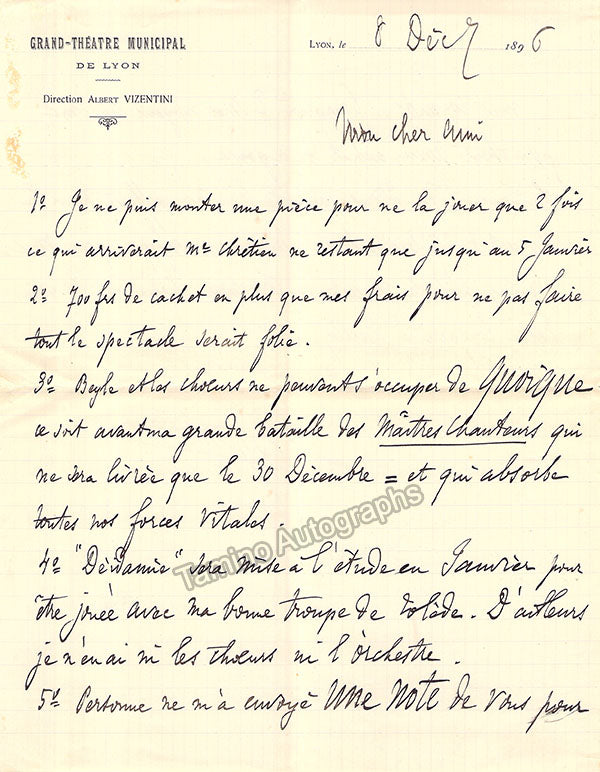 GRAND-THÉATRE MUNICIPAL
DE LYON
Direction ALBERT VIZENTINI
LYON, le 8 Déc 1896
Mon cher Ami
1º Je ne puis monter une pièce pour ne la jouer que 2 fois
ce qui arriverait Me Chrétien ne restant que jusqu'au 5 Janvier
2º 700 frs de cachet en plus que mes frais pour ne pas faire
tout le spectacle serait folie.
3º Beyle et les choeurs ne peuvent s'occuper de
ce soit avant ma grande bataille des Maîtres Chanteurs qui
ne sera livrée que le 30 Décembre = et qui absorbe
toutes nos forces vitales.
4º "Déidamie" sera mise à l'étude en Janvier pour
être jouée avec ma bonne troupe de . D'ailleurs
je n'en ai ni les choeurs ni l'orchestre.
5º Personne ne m'a envoyé UNE NOTE de vous pour
Tamino Autographs